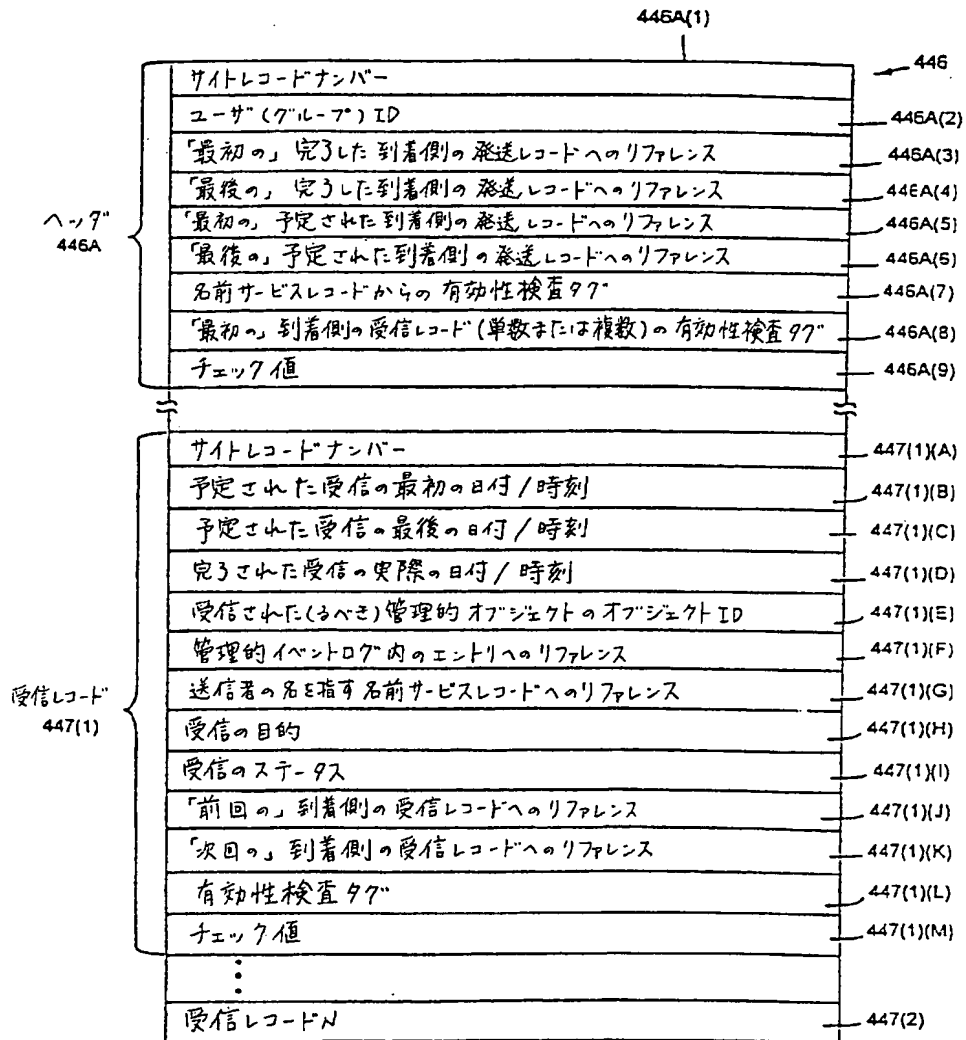 446A(1)
446
サイトレコードナンバー
ユーザ(グループ)ID
446A(2)
「最初の」完了した到着側の発送レコードへのリファレンス
446A(3)
「最後の」完了した到着側の発送レコードへのリファレンス
44EA(4)
「最初の」予定された到着側の発送レコードへのリファレンス
446A(5)
「最後の」予定された到着側の発送レコードへのリファレンス
446A(6)
名前サービスレコードからの有効性検査タグ
446A(7)
「最初の」到着側の受信レコード(単数または複数)の有効性検査タグ
446A(8)
チェック値
446A(9)
ヘッダ
446A
サイトレコードナンバー
447(1)(A)
予定された受信の最初の日付/時刻
447(1)(B)
予定された受信の最後の日付/時刻
447(1)(C)
完了された受信の実際の日付/時刻
447(1)(D)
受信された(るべき)管理的オブジェクトのオブジェクトID
447(1)(E)
管理的イベントログ内のエントリへのリファレンス
447(1)(F)
送信者の名を指す名前サービスレコードへのリファレンス
447(1)(G)
受信の目的
447(1)(H)
受信のステータス
447(1)(I)
「前回の」到着側の受信レコードへのリファレンス
447(1)(J)
「次回の」到着側の受信レコードへのリファレンス
447(1)(K)
有効性検査タグ
447(1)(L)
チェック値
447(1)(M)
受信レコード
447(1)
受信レコードN
447(2)